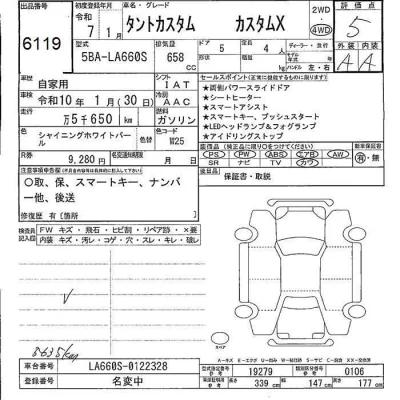 出品番号 初度登録年月 車名・グレード 2WD 評価点
6119 令和 7 1月 タントカスタム カスタムX 4WD 5
型式 排気量 ドア 定員 ディーラー・並行 外装 内装
5BA-LA660S 658 cc 5 4 人 モデル 年 ハンドル 左・右 A A
車歴 自家用 シフト IAT セールスポイント(正常に機能するものに限ります)
車検 令和10年 1月(30日) 冷房 AAC ★両側パワースライドドア
走行 万5千650 km 燃料 ガソリン ★シートヒーター
★スマートアシスト
★スマートキー、プッシュスタート
★LEDヘッドランプ&フォグランプ
★アイドリングストップ
色 シャイニングホワイトパール 色替 色コード W25
R券 9,280円 名変期限 月 日
PS PW ABS エアB AW 有・無
SR ナビ TV カワ
保証書・取説
注意事項欄
○取、保、スマートキー、ナンバ
ー他、後送
修復歴 有 [箇所 ]
検査員記入欄 FW キズ・飛石・ヒビ割・リペア跡・×要
内装 キズ・汚レ・コゲ・穴・スレ・キレ・破レ
V
スペア
車台番号 LA660S-0122328
登録番号 名変中
型式指定番号 19279 類別区分番号 0106
長さ 339 cm 幅 147 cm 高さ 177 cm